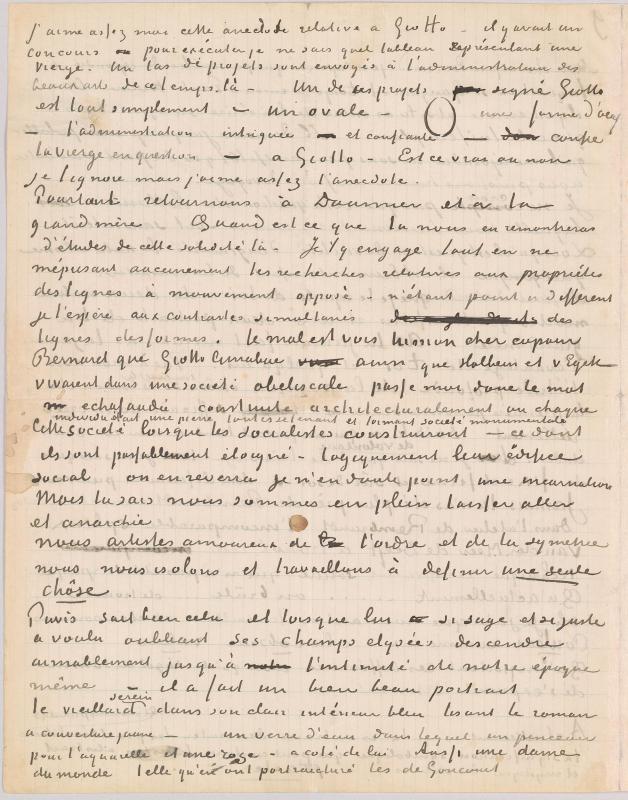 j'aime assez moi cette anecdote relative a Giotto – il y avait un
concours pour exécuter je ne sais quel tableau représentant une
vierge. Un tas de projets sont envoyés à l'administration des
beaux arts de ce temps là – Un de ces projets signé Giotto
est tout simplement – un ovale – une forme d'oeuf
– l'administration intriguée et confiante – confie
la vierge en question – a Giotto – Est ce vrai ou non
je l'ignore mais j'aime assez l'anecdote.
Pourtant retournons à Daumier et à ta
grand mère Quand est ce que tu nous en remontreras
d'études de cette solidité là – Je t'y engage tout en ne
méprisant aucunement tes recherches relatives aux propriétés
des lignes à mouvement opposé – n'étant point indifférent
je l'espère aux contrastes simultanés des
lignes, des formes. le mal est vois tu mon cher copain
Bernard que Giotto Cimabue ainsi que Holbein et v Eyck
vivaient dans une société obeliscale passe moi donc le mot
echafaudée construite architecturalement ou chaque
individu était une pierre toutes se tenant et formant société monumentale
Cette société lorsque les socialistes construiront – ce dont
ils sont passablement éloigné – logiquement leur édifice
social on en reverra je n'en doute point une incarnation
Mais tu sais nous sommes en plein laisser aller
et anarchie
nous artistes amoureux de l'ordre et de la symetrie
nous nous isolons et travaillons à definir une seule
chôse
Puvis sait bien cela et lorsque lui si sage et si juste
a voulu oubliant ses champs elysées descendre
aimablement jusqu'à l'intimité de notre époque
même il a fait un bien beau portrait
le vieillard serein dans son clair intérieur bleu lisant le roman
a couverture jaune – un verre d'eau dans lequel un pinceau
pour l'aquarelle et une rose – a coté de lui Aussi une dame
du monde telle qu'en ont portraicturé les de Goncourt